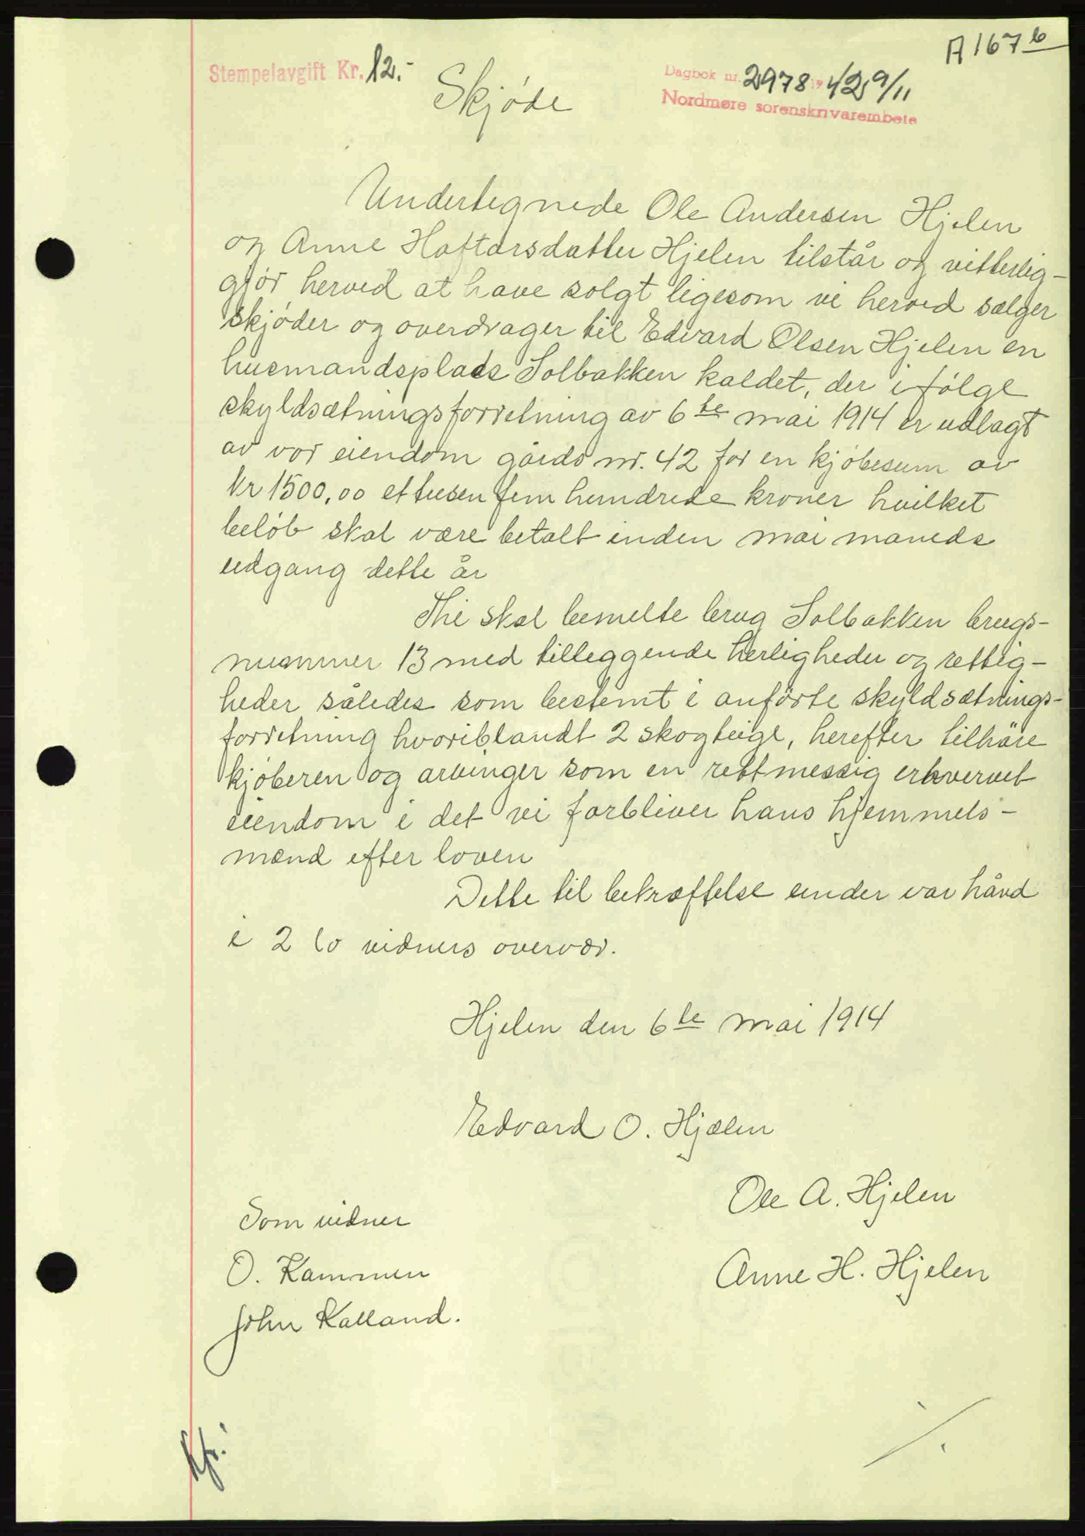 A 167 b
Stempelavgift Kr. 12.-
Dagbok nr. 2978 19 42 9/11
Nordmøre sorenskrivarembete
Skjøde
Undertegnede Ole Andersen Hjelen
og Anne Haftorsdatter Hjelen tilstår og vitterlig-
gjör herved at have solgt ligesom vi herved sælger
skjøder og overdrager til Edvard Olsen Hjelen en
husmandsplads Solbakken kaldet, der ifølge
skyldsætningsforretning av 6te mai 1914 er udlagt
av vor eiendom gårds nr. 42 for en kjöbesum av
Kr 1500,00 ettusen fem hundrede kroner hvilket
belöb skal være betalt inden mai maneds
udgang dette år
Thi skal bemelte brug Solbakken brugs-
nummer 13 med tilleggende herligheder og rettig-
heder således som bestemt i anförte skyldsætnings-
forretning hvoriblandt 2 skogteige, herefter tilhöre
kjöberen og arvinger som en rettmessig erhvervet
eiendom i det vi forbliver hans hjemmels-
mænd efter loven
Dette til bekræftelse under vor hånd
i 2 to vidners overvær.
Hjelen den 6te mai 1914
Edvard O. Hjælen
Ole A. Hjelen
Anne H. Hjelen
Som vidner
O. Kammen
John Kalland.